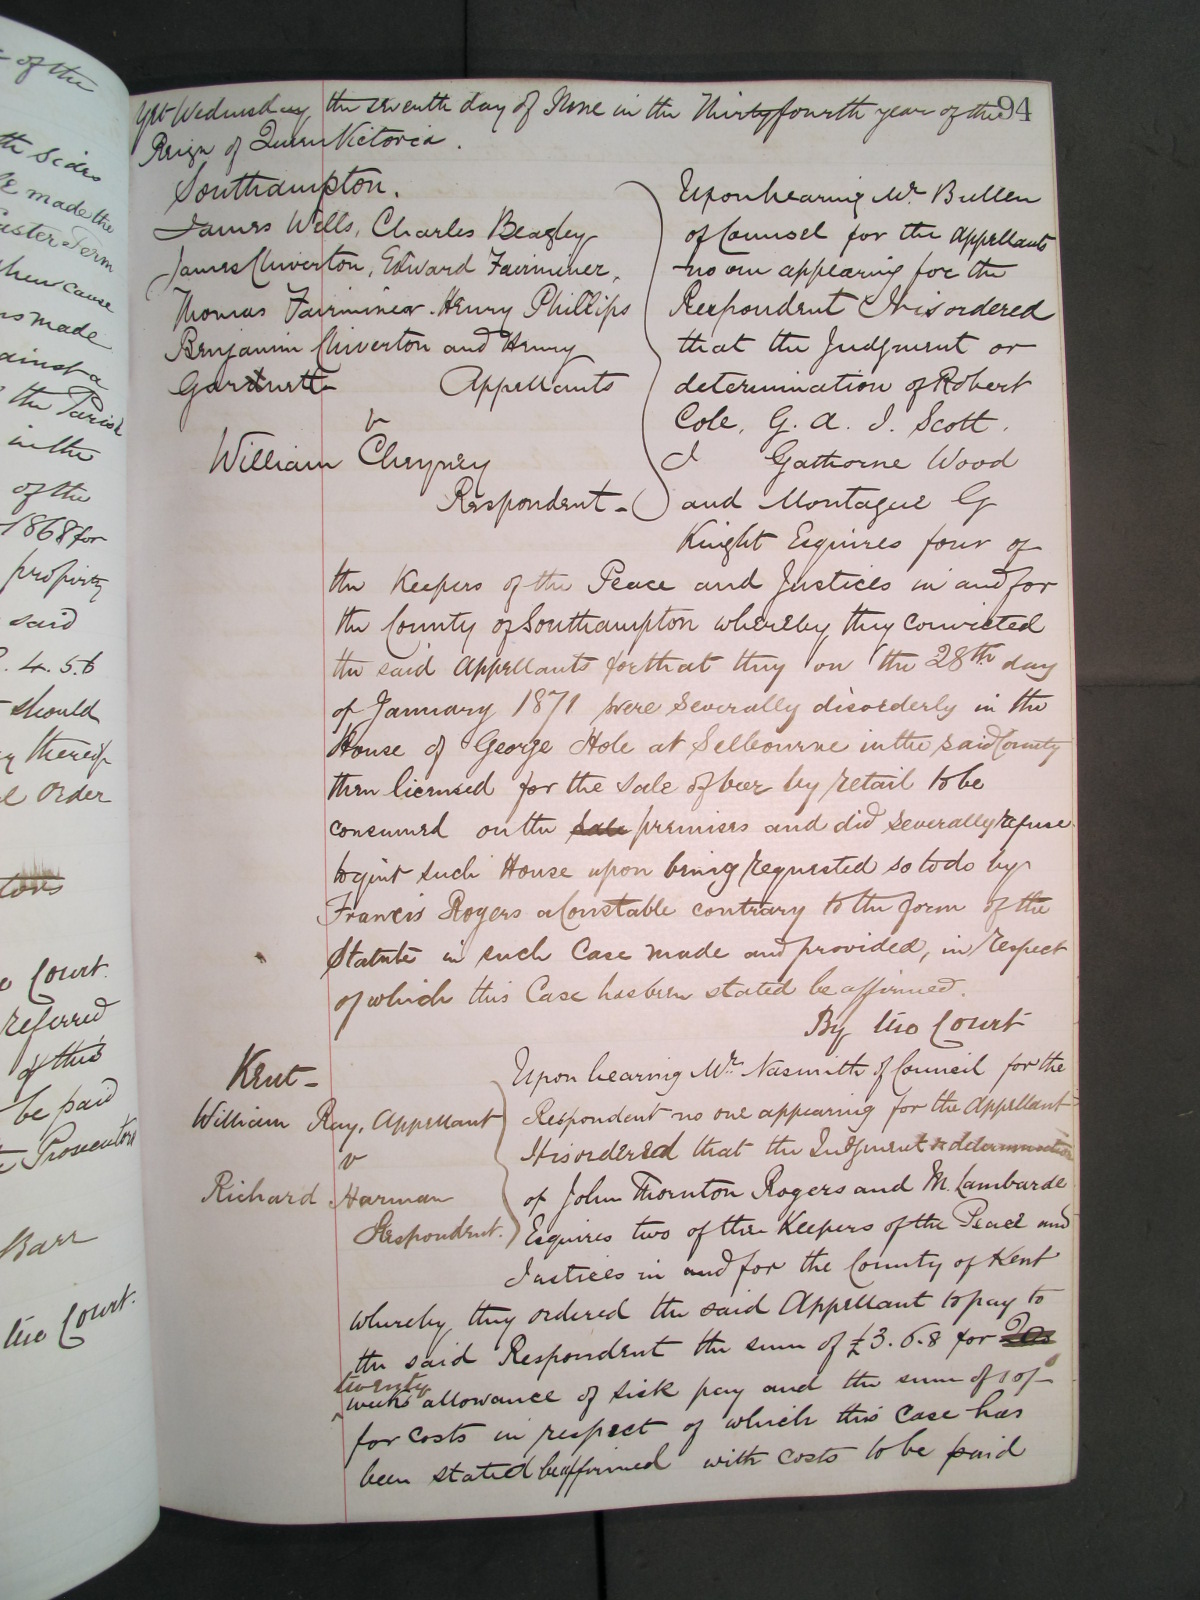 of the
the sides
made the
aster Term
shew cause
made
ainst a
the Parish
in the
of the
1868 for
property
said
4. 5. 6
should
thereof
Order
Court.
referred
of this
be paid
Prosecutors
Barr
the Court.
94
Yet Wednesday the seventh day of June in the Thirtyfourth year of the
Reign of Queen Victoria.
Southampton.
James Wells, Charles Beagley
James Chiverton, Edward Fairminer,
Thomas Fairminer. Henry Phillips
Benjamin Chiverton and Henry
Appellants
v
William Cheyney
Respondent -
Upon hearing Mr. Bullen
of Counsel for the Appellants
no one appearing for the
Respondent It is ordered
that the Judgment or
determination of Robert
Cole, G. A. J. Scott,
J Gathorne Wood
and Montague G
Knight Esquires four of
the Keepers of the Peace and Justices in and for
the County of Southampton whereby they convicted
the said Appellants for that they on the 28th day
of January 1871 were severally disorderly in the
House of George Hole at Selbourne in the said County
then licensed for the sale of beer by retail to be
consumed on the sale premises and did severally refuse
to quit such House upon being requested so to do by
Francis Rogers a Constable contrary to the form of the
Statute in such Case made and provided, in respect
of which this Case has been stated be affirmed.
By the Court
Kent -
William Ray, Appellant
v
Richard Harman
Respondent.
Upon hearing Mr. Nasmith of Council for the
Respondent no one appearing for the Appellant
It is ordered that the Judgment or determination
of John Thornton Rogers and M. Lambarde
Esquires two of the Keepers of the Peace and
Justices in and for the County of Kent
whereby they ordered the said Appellant to pay to
the said Respondent the sum of £3. 6. 8 for 20s
twenty
weeks allowance of sick pay and the sum of 10/-
for costs in respect of which this Case has
been stated be affirmed with costs to be paid